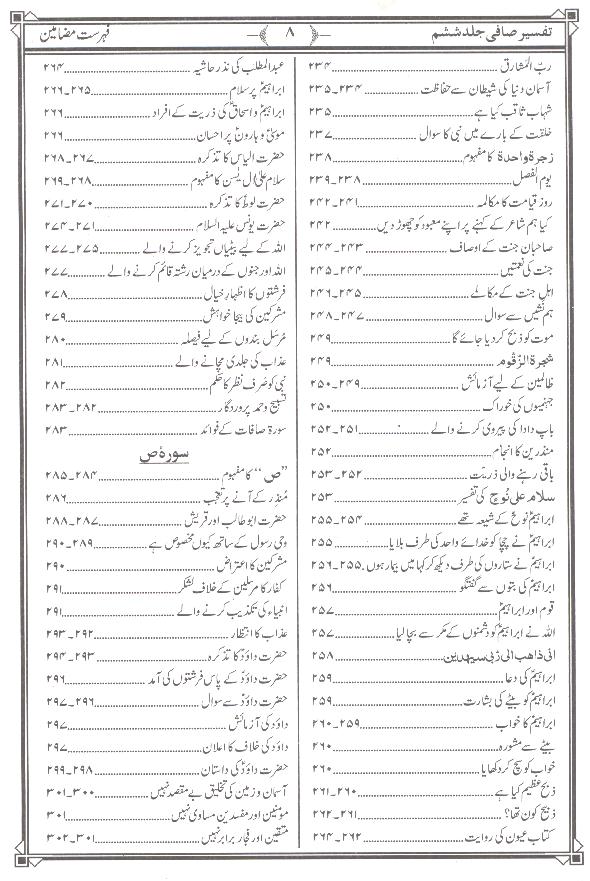 تفسیر صافی جلد ششم
۸
فہرست مضامین
ربّ المشارق ۲۳۴
آسمان دنیا کی شیطان سے حفاظت ۲۳۴۔۲۳۵
شہاب ثاقب کیا ہے ۲۳۵
خلقت کے بارے میں نبی کا سوال ۲۳۷
زجرۃ واحدۃ کا مفہوم ۲۳۸
یوم الفصل ۲۳۸۔۲۳۹
روز قیامت کا مکالمہ ۲۴۱۔۲۴۲
کیا ہم شاعر کے کہنے پر اپنے معبود کو چھوڑ دیں ۲۴۲
صاحبان جنت کے اوصاف ۲۴۳۔۲۴۴
جنت کی نعمتیں ۲۴۴۔۲۴۵
اہل جنت کے مکالمے ۲۴۵۔۲۴۶
ہم نشیں سے سوال ۲۴۷۔۲۴۸
موت کو ذبح کر دیا جائے گا ۲۴۹
شجرۃ الزقوم ۲۴۹
ظالمین کے لیے آزمائش ۲۴۹۔۲۵۰
جہنمیوں کی خوراک ۲۵۰
باپ دادا کی پیروی کرنے والے ۲۵۱۔۲۵۲
منذرین کا انجام ۲۵۲
باقی رہنے والی ذریت ۲۵۲۔۲۵۳
سلام علی نوح کی تفسیر ۲۵۳
ابراہیمؑ نوحؑ کے شیعہ تھے ۲۵۴۔۲۵۵
ابراہیمؑ نے چچا کو خدائے واحد کی طرف بلایا ۲۵۵
ابراہیمؑ نے ستاروں کی طرف دیکھ کر کہا میں بیمار ہوں ۲۵۵۔۲۵۶
ابراہیمؑ کی بتوں سے گفتگو ۲۵۶
قوم اور ابراہیمؑ ۲۵۷
اللہ نے ابراہیمؑ کو دشمنوں کے مکر سے بچا لیا ۲۵۷
انی ذاھب الی ربی سیھدین ۲۵۸
ابراہیمؑ کی دعا ۲۵۹
ابراہیمؑ کو بیٹے کی بشارت ۲۵۹
ابراہیمؑ کا خواب ۲۵۹۔۲۶۰
بیٹے سے مشورہ ۲۶۰
خواب کو سچ کر دکھایا ۲۶۰
ذبح عظیم کیا ہے ۲۶۰۔۲۶۱
ذبیح کون تھا؟ ۲۶۱۔۲۶۲
کتاب عیون کی روایت ۲۶۲۔۲۶۴
عبدالمطلب کی نذر حاشیہ ۲۶۴
ابراہیمؑ پر سلام ۲۶۵۔۲۶۶
ابراہیمؑ و اسحاقؑ کی ذریت کے افراد ۲۶۶
موسیٰؑ و ہارونؑ پر احسان ۲۶۶
حضرت الیاسؑ کا تذکرہ ۲۶۷۔۲۶۸
سلام علیٰ ال یٰسن کا مفہوم ۲۶۸۔۲۶۹
حضرت لوطؑ کا تذکرہ ۲۷۰۔۲۷۱
حضرت یونس علیہ السلام ۲۷۱۔۲۷۴
اللہ کے لیے بیٹیاں تجویز کرنے والے ۲۷۵۔۲۷۷
اللہ اور جنوں کے درمیان رشتہ قائم کرنے والے ۲۷۷
فرشتوں کا اظہار خیال ۲۷۸
مشرکین کی بیجا خواہش ۲۷۹
مُرسَل بندوں کے لیے فیصلہ ۲۸۰
عذاب کی جلدی مچانے والے ۲۸۱
نبی کو صَرفِ نظر کا حکم ۲۸۲
تسبیح و حمد پروردگار ۲۸۲۔۲۸۳
سورۂ صافات کے فوائد ۲۸۳
سورۂ ص
”ص“ کا مفہوم ۲۸۴۔۲۸۵
مُنذِر کے آنے پر تعجب ۲۸۶
حضرت ابوطالبؑ اور قریش ۲۸۷۔۲۸۸
وحی رسول کے ساتھ کیوں مخصوص ہے ۲۸۹۔۲۹۰
مشرکین کا اعتراض ۲۹۰
کفار کا مرسلین کے خلاف لشکر ۲۹۱
انبیاء کی تکذیب کرنے والے ۲۹۱
عذاب کا انتظار ۲۹۲۔۲۹۳
حضرت داؤدؑ کا تذکرہ ۲۹۳۔۲۹۴
حضرت داؤدؑ کے پاس فرشتوں کی آمد ۲۹۶
حضرت داؤدؑ سے سوال ۲۹۶۔۲۹۷
داؤد کی آزمائش ۲۹۷
داؤد کی خلافت کا اعلان ۲۹۷
حضرت داؤدؑ کی داستان ۲۹۸۔۲۹۹
آسمان و زمین کی تخلیق بے مقصد نہیں ۳۰۰۔۳۰۱
مومنین اور مفسدین مساوی نہیں ۳۰۱
متقین اور فجار برابر نہیں ۳۰۱۔۳۰۲